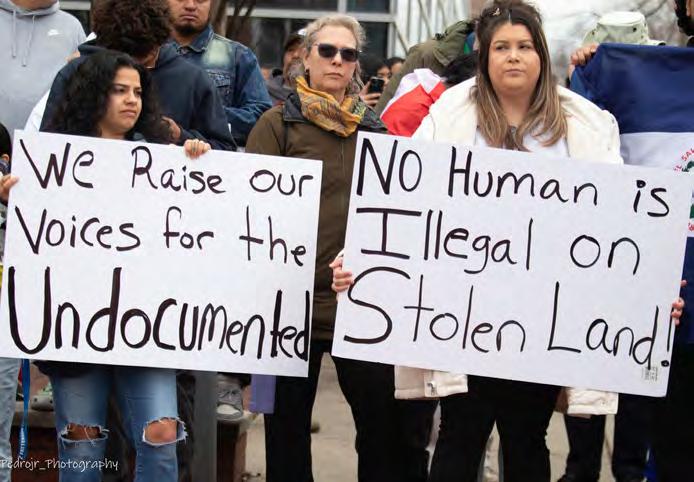 We Raise our
Voices for the
Undocumented
No Human is
Illegal on
Stolen Land!
Pedrojr_Photography